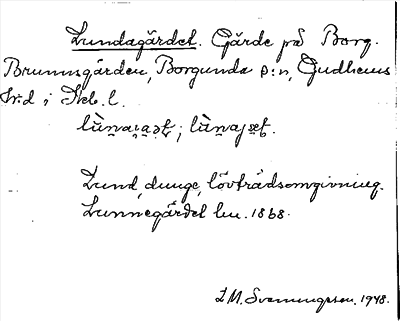 Lundagärdet. Gärde på Borg.
Brunnsgården, Borgunda s:n, Gudhems
hrd i Skb. l.
Lund, dunge, lövträdsomgivning.
Lunnegärdet lm. 1868.
I.M. Svenningsson. 1948.